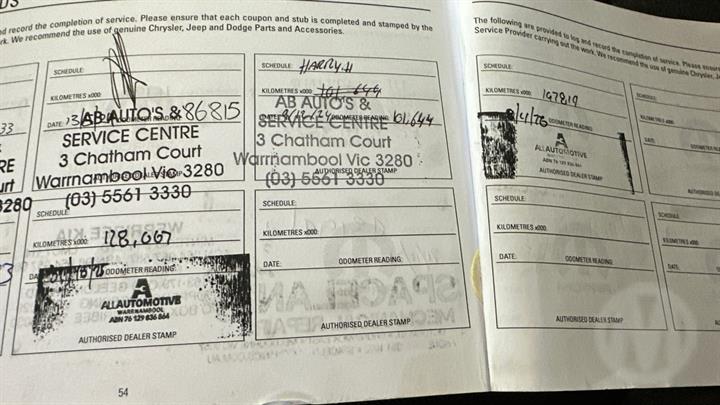 d record the completion of service. Please ensure that each coupon and stub is completed and stamped by the
rk. We recommend the use of genuine Chrysler, Jeep and Dodge Parts and Accessories.
SCHEDULE:
KILOMETRES x000:
DATE: ODOMETER READING: 86815
AB AUTO'S &
SERVICE CENTRE
3 Chatham Court
Warrnambool Vic 3280
(03) 5561 3330
SCHEDULE: HARRY.H
KILOMETRES x000: 101 644
DATE: ODOMETER READING: 101.644
AB AUTO'S &
SERVICE CENTRE
3 Chatham Court
Warrnambool Vic 3280
(03) 5561 3330
AUTHORISED DEALER STAMP
33
RE
urt
3280
SCHEDULE:
KILOMETRES x000: 128,667
ODOMETER READING:
A
ALLAUTOMOTIVE
WARRNAMBOOL
ABN 76 129 836 864
AUTHORISED DEALER STAMP
SCHEDULE:
KILOMETRES x000:
DATE: ODOMETER READING:
AUTHORISED DEALER STAMP
54
The following are provided to log and record the completion of service. Please ensure
Service Provider carrying out the work. We recommend the use of genuine Chrysler, J
SCHEDULE:
KILOMETRES x000: 147819
ODOMETER READING:
A
ALLAUTOMOTIVE
WARRNAMBOOL
ABN 76 129 836 864
AUTHORISED DEALER STAMP
SCHEDULE:
KILOMETRES x000:
DATE:
AUTHORISED DEA
SCHEDULE:
KILOMETRES x000:
DATE: ODOMETER READING:
AUTHORISED DEALER STAMP
SCHEDULE:
KILOMETRES x000:
DATE:
AUT